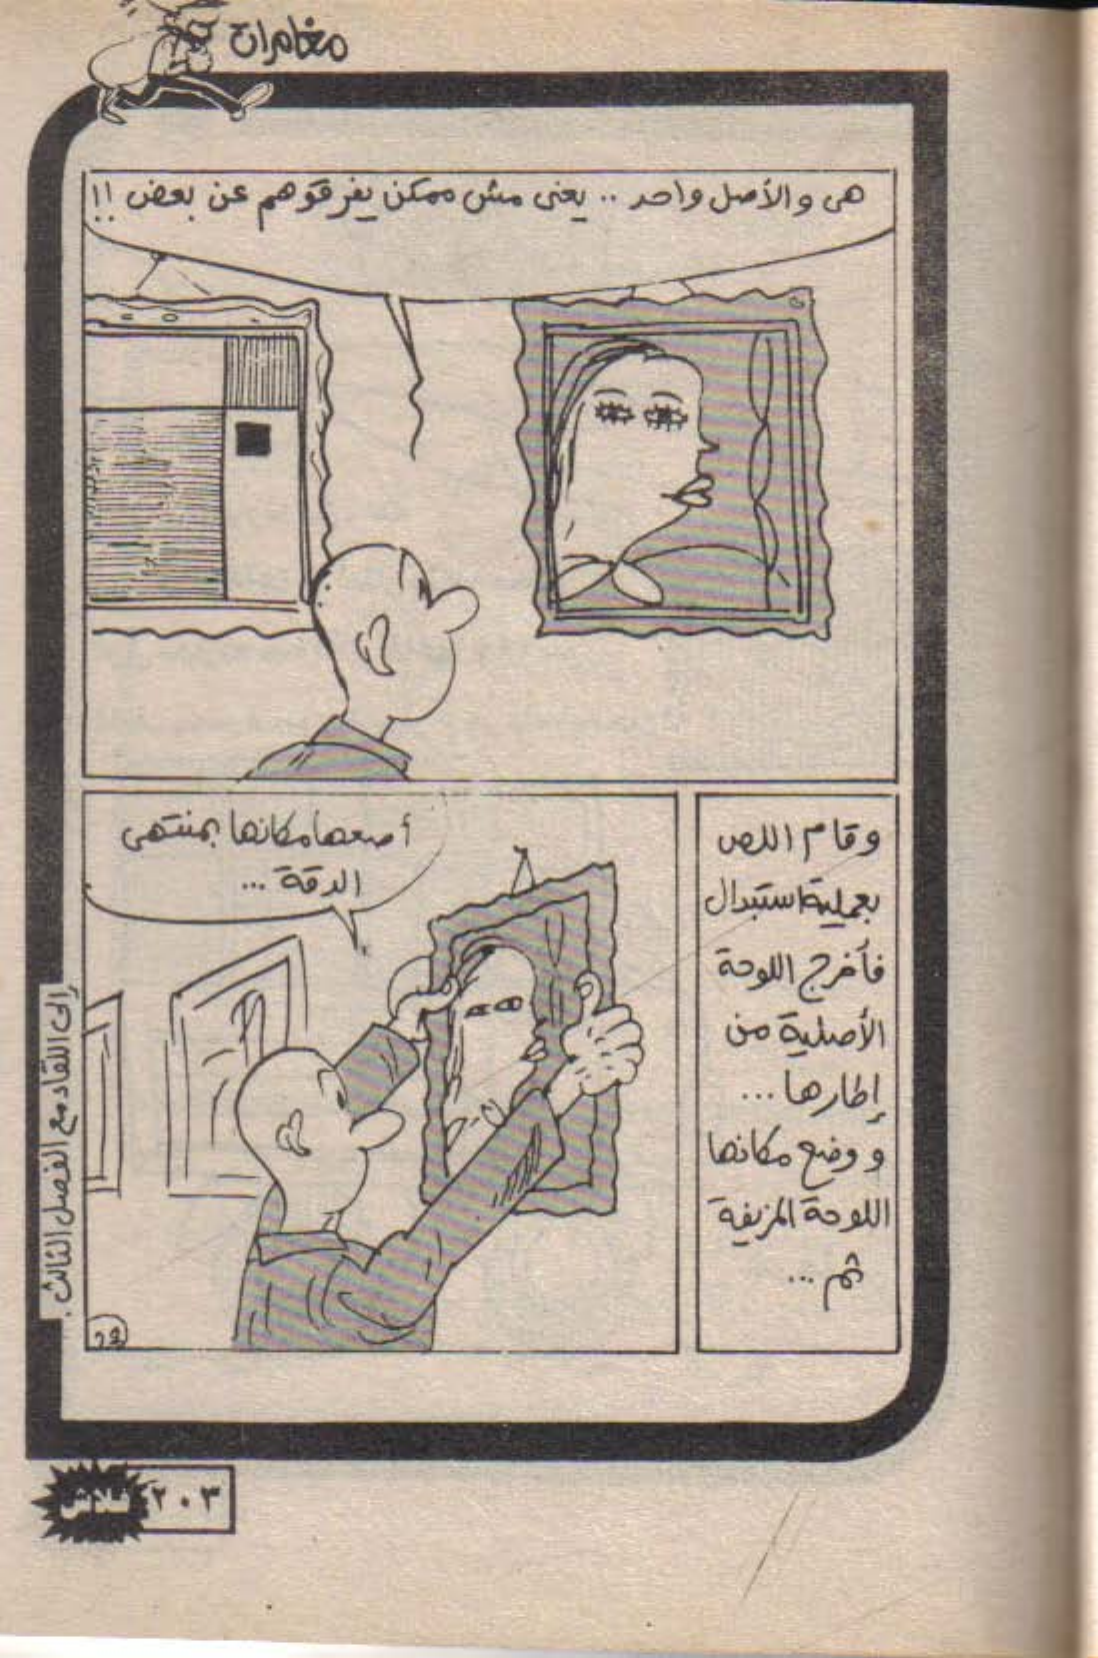 مغامرات
هى والأصل واحد .. يعنى مش ممكن يفرقوهم عن بعض !!
وقام اللص
بعملية استبدال
فأخرج اللوحة
الأصلية من
إطارها ...
ووضع مكانها
اللوحة المزيفة
ثم ...
أضعها مكانها بمنتهى
الدقة ...
إلى اللقاء مع الفصل الثالث .
٢٠٣
فلاش